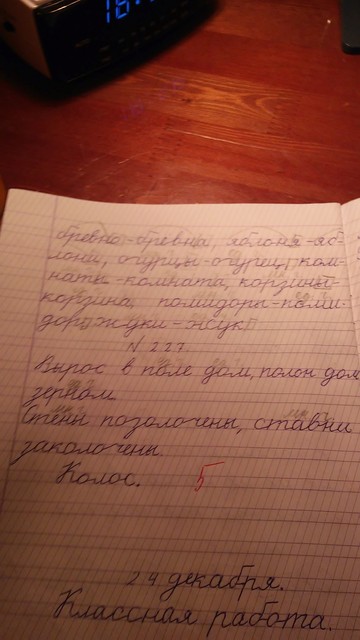 18:
бревно-бревна, яблоня-яб-
лони, огурцы-огурец, ком-
наты-комната, корзины-
корзина, помидоры-поми-
дор, жуки-жук
N 227.
Вырос в поле дом, полон дом
зерном.
Стены позолочены, ставни
заколочены.
Колос. 5
24 декабря.
Классная работа.